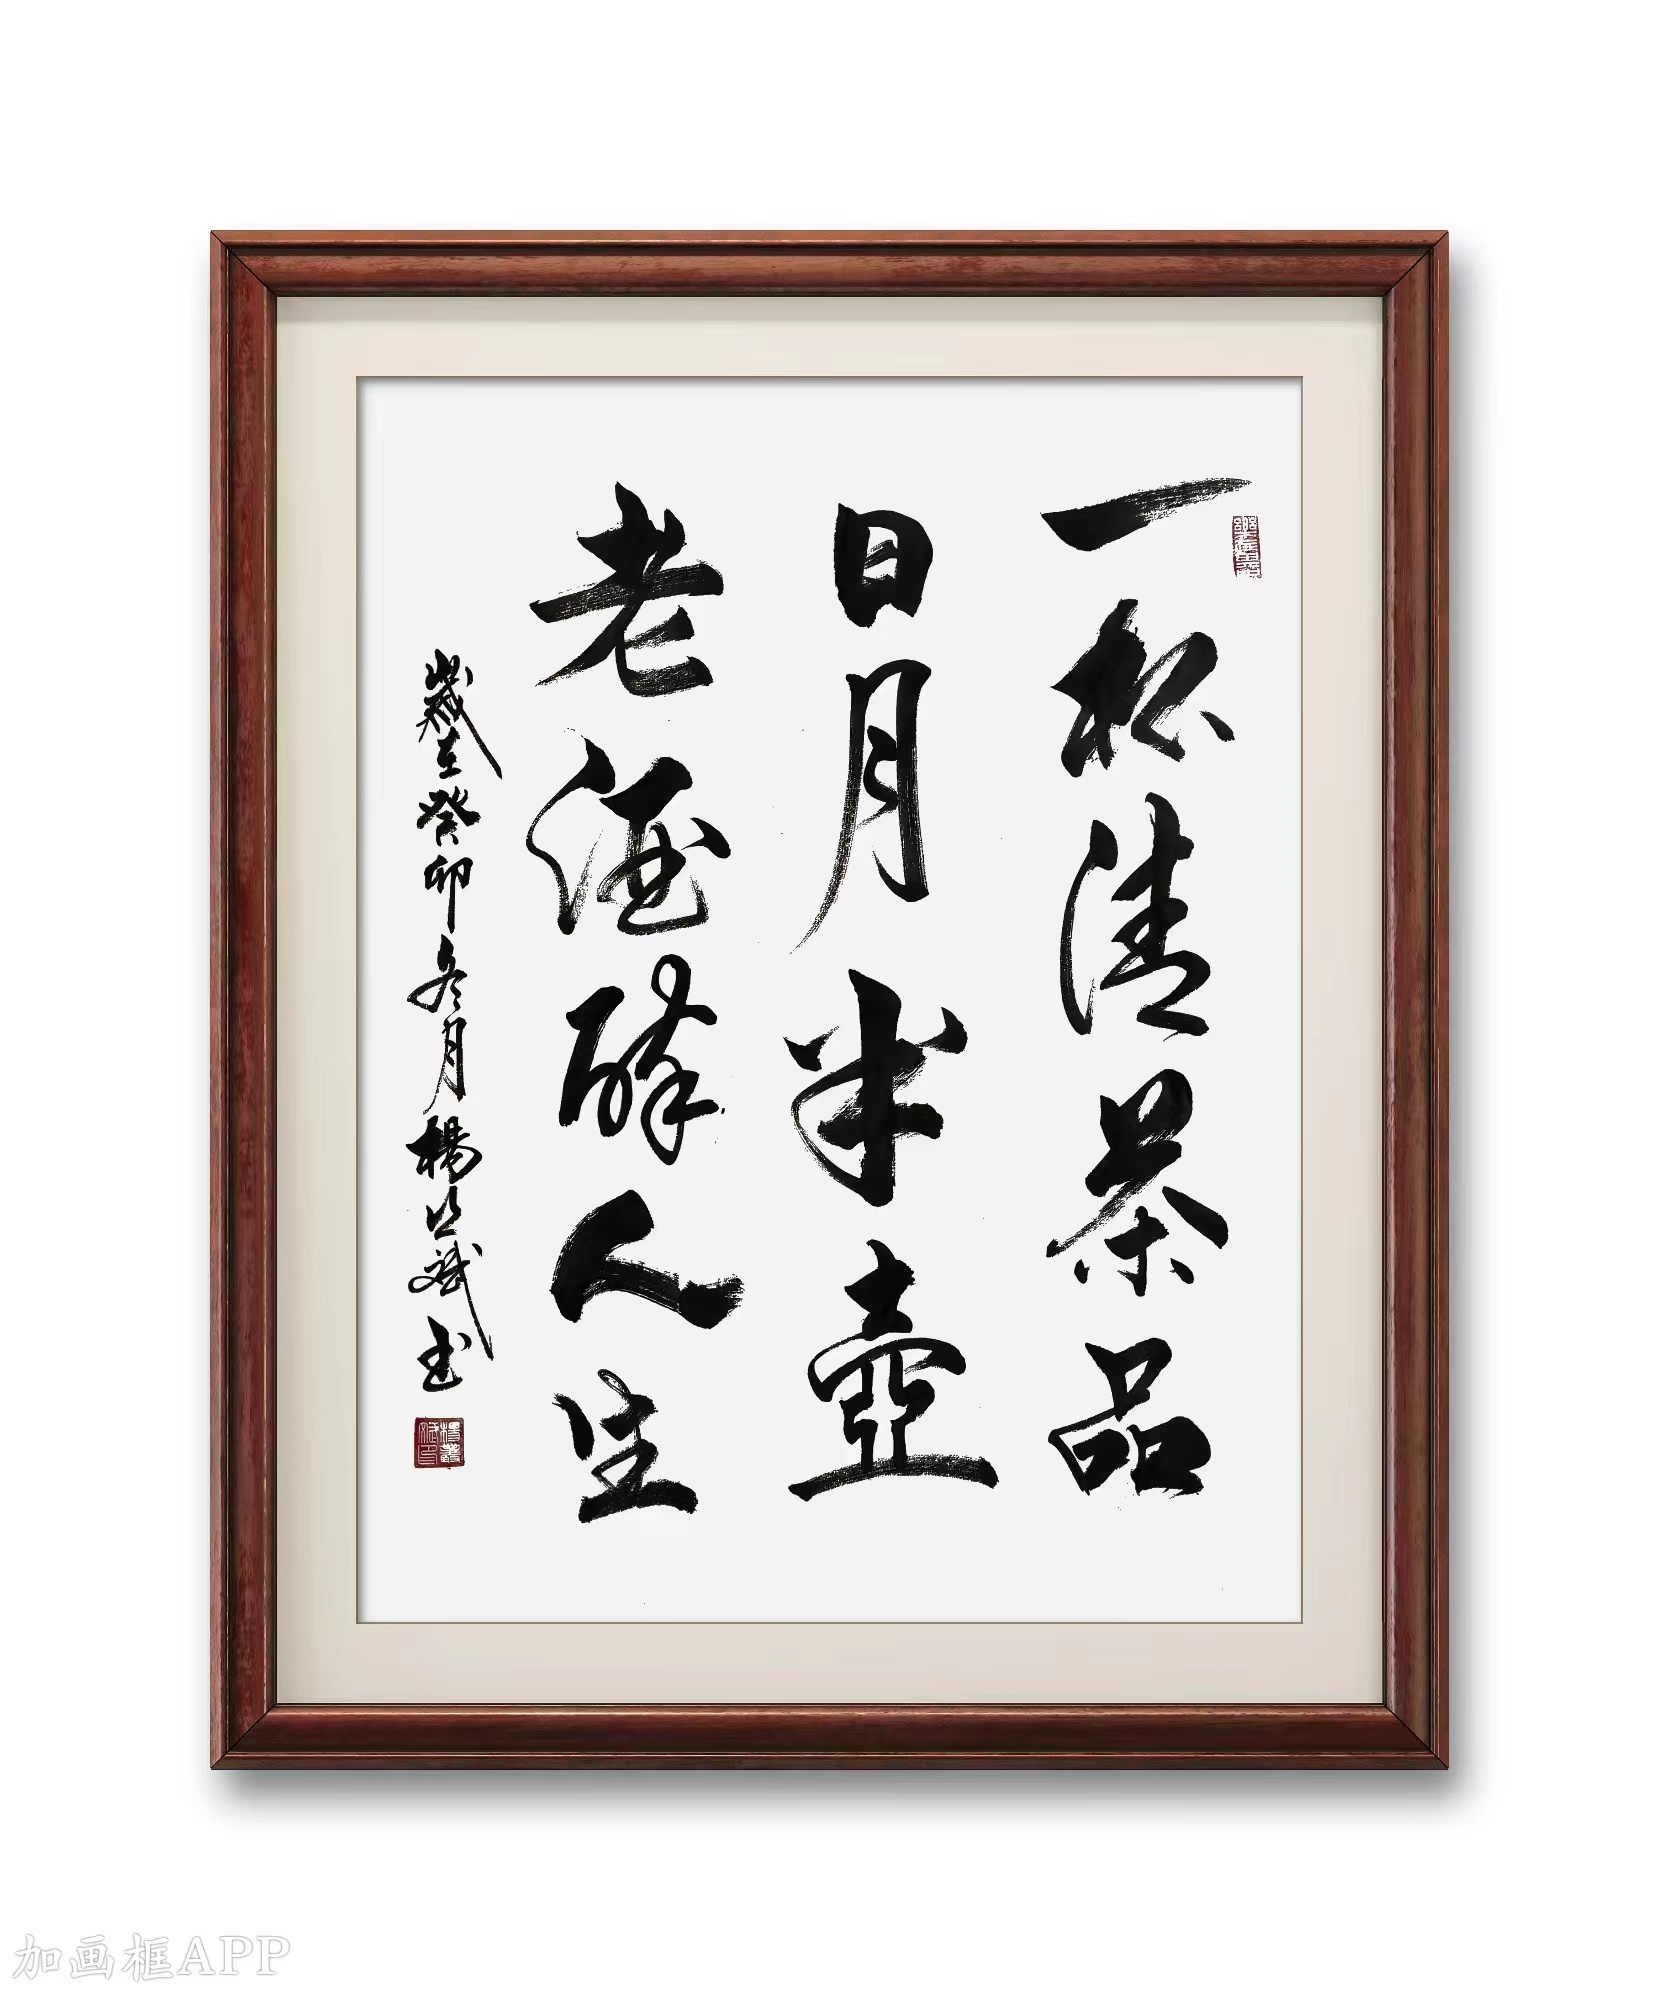 一杯清茶品
日月半壶
老酒醉人生
歲在癸卯冬月楊
斌書
加画框APP